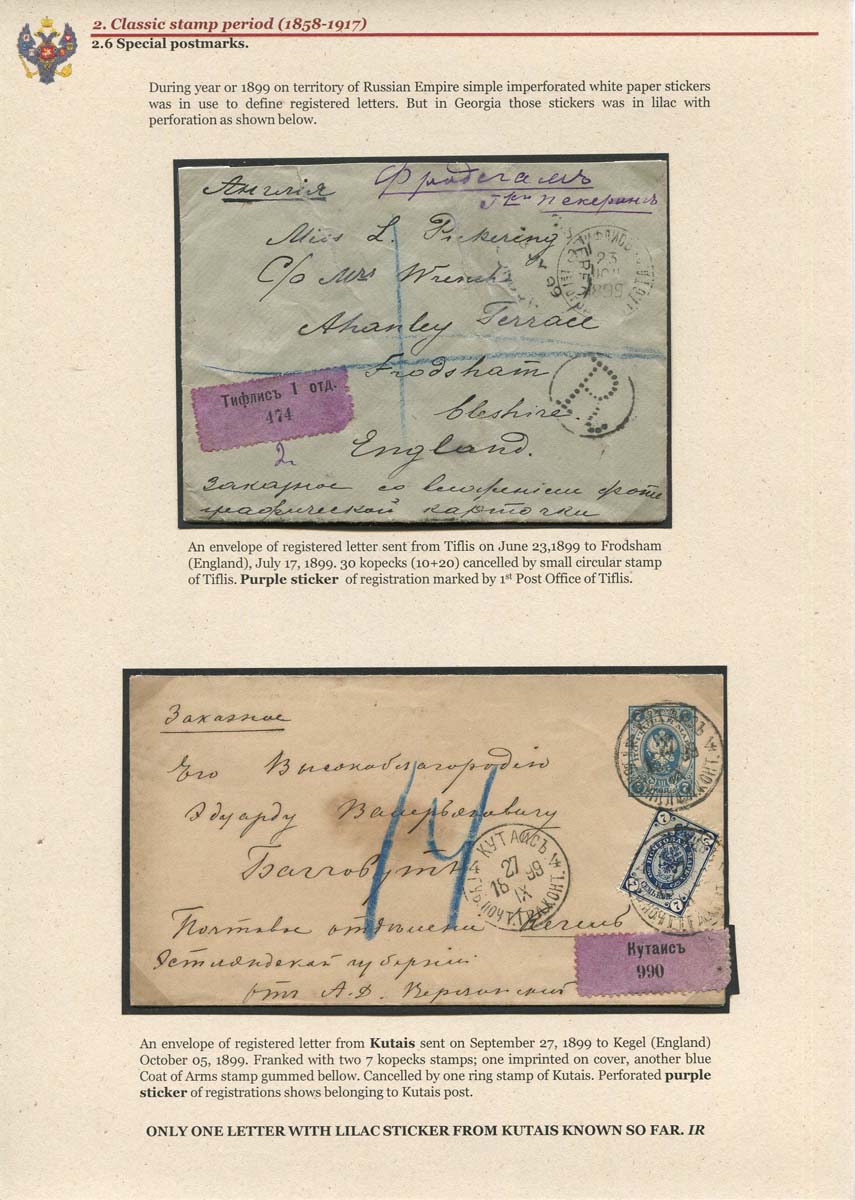 2. Classic stamp period (1858-1917)
2.6 Special postmarks.
During year or 1899 on territory of Russian Empire simple imperforated white paper stickers
was in use to define registered letters. But in Georgia those stickers was in lilac with
perforation as shown below.
Англія
Фродсгамъ
Пекерингъ
Miss L. Pickering
C/o Mrs Wrench
ТИФЛИСЪ
23
1899
99
Ahanley Terrace
Frodsham
R
Тифлисъ 1 отд.
474
Cleshire.
2
England.
Заказное со вложеніем фото
графической карточки
An envelope of registered letter sent from Tiflis on June 23,1899 to Frodsham
(England), July 17, 1899. 30 kopecks (10+20) cancelled by small circular stamp
of Tiflis. Purple sticker of registration marked by 1st Post Office of Tiflis.
Заказное
Его Высокоблагородію
Эдуарду Валерьяновичу
Багговутъ
14
7
7
КУТАИСЪ
27
IX
16 99
ПОЧТ.ТЛГР.КОНТ.
Почтовое отдѣленіе Кегель
Эстляндской губерніи
отъ А.Д.
Кутаисъ
990
An envelope of registered letter from Kutais sent on September 27, 1899 to Kegel (England)
October 05, 1899. Franked with two 7 kopecks stamps; one imprinted on cover, another blue
Coat of Arms stamp gummed bellow. Cancelled by one ring stamp of Kutais. Perforated purple
sticker of registrations shows belonging to Kutais post.
ONLY ONE LETTER WITH LILAC STICKER FROM KUTAIS KNOWN SO FAR. IR